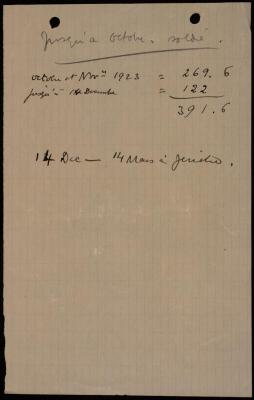 Jusqu'à octobre. soldé.
octobre et Nov^re 1923 = 269.6
jusqu'à 14 Decembre = 122
391.6
14 Dec — 14 Mars à Jericho.